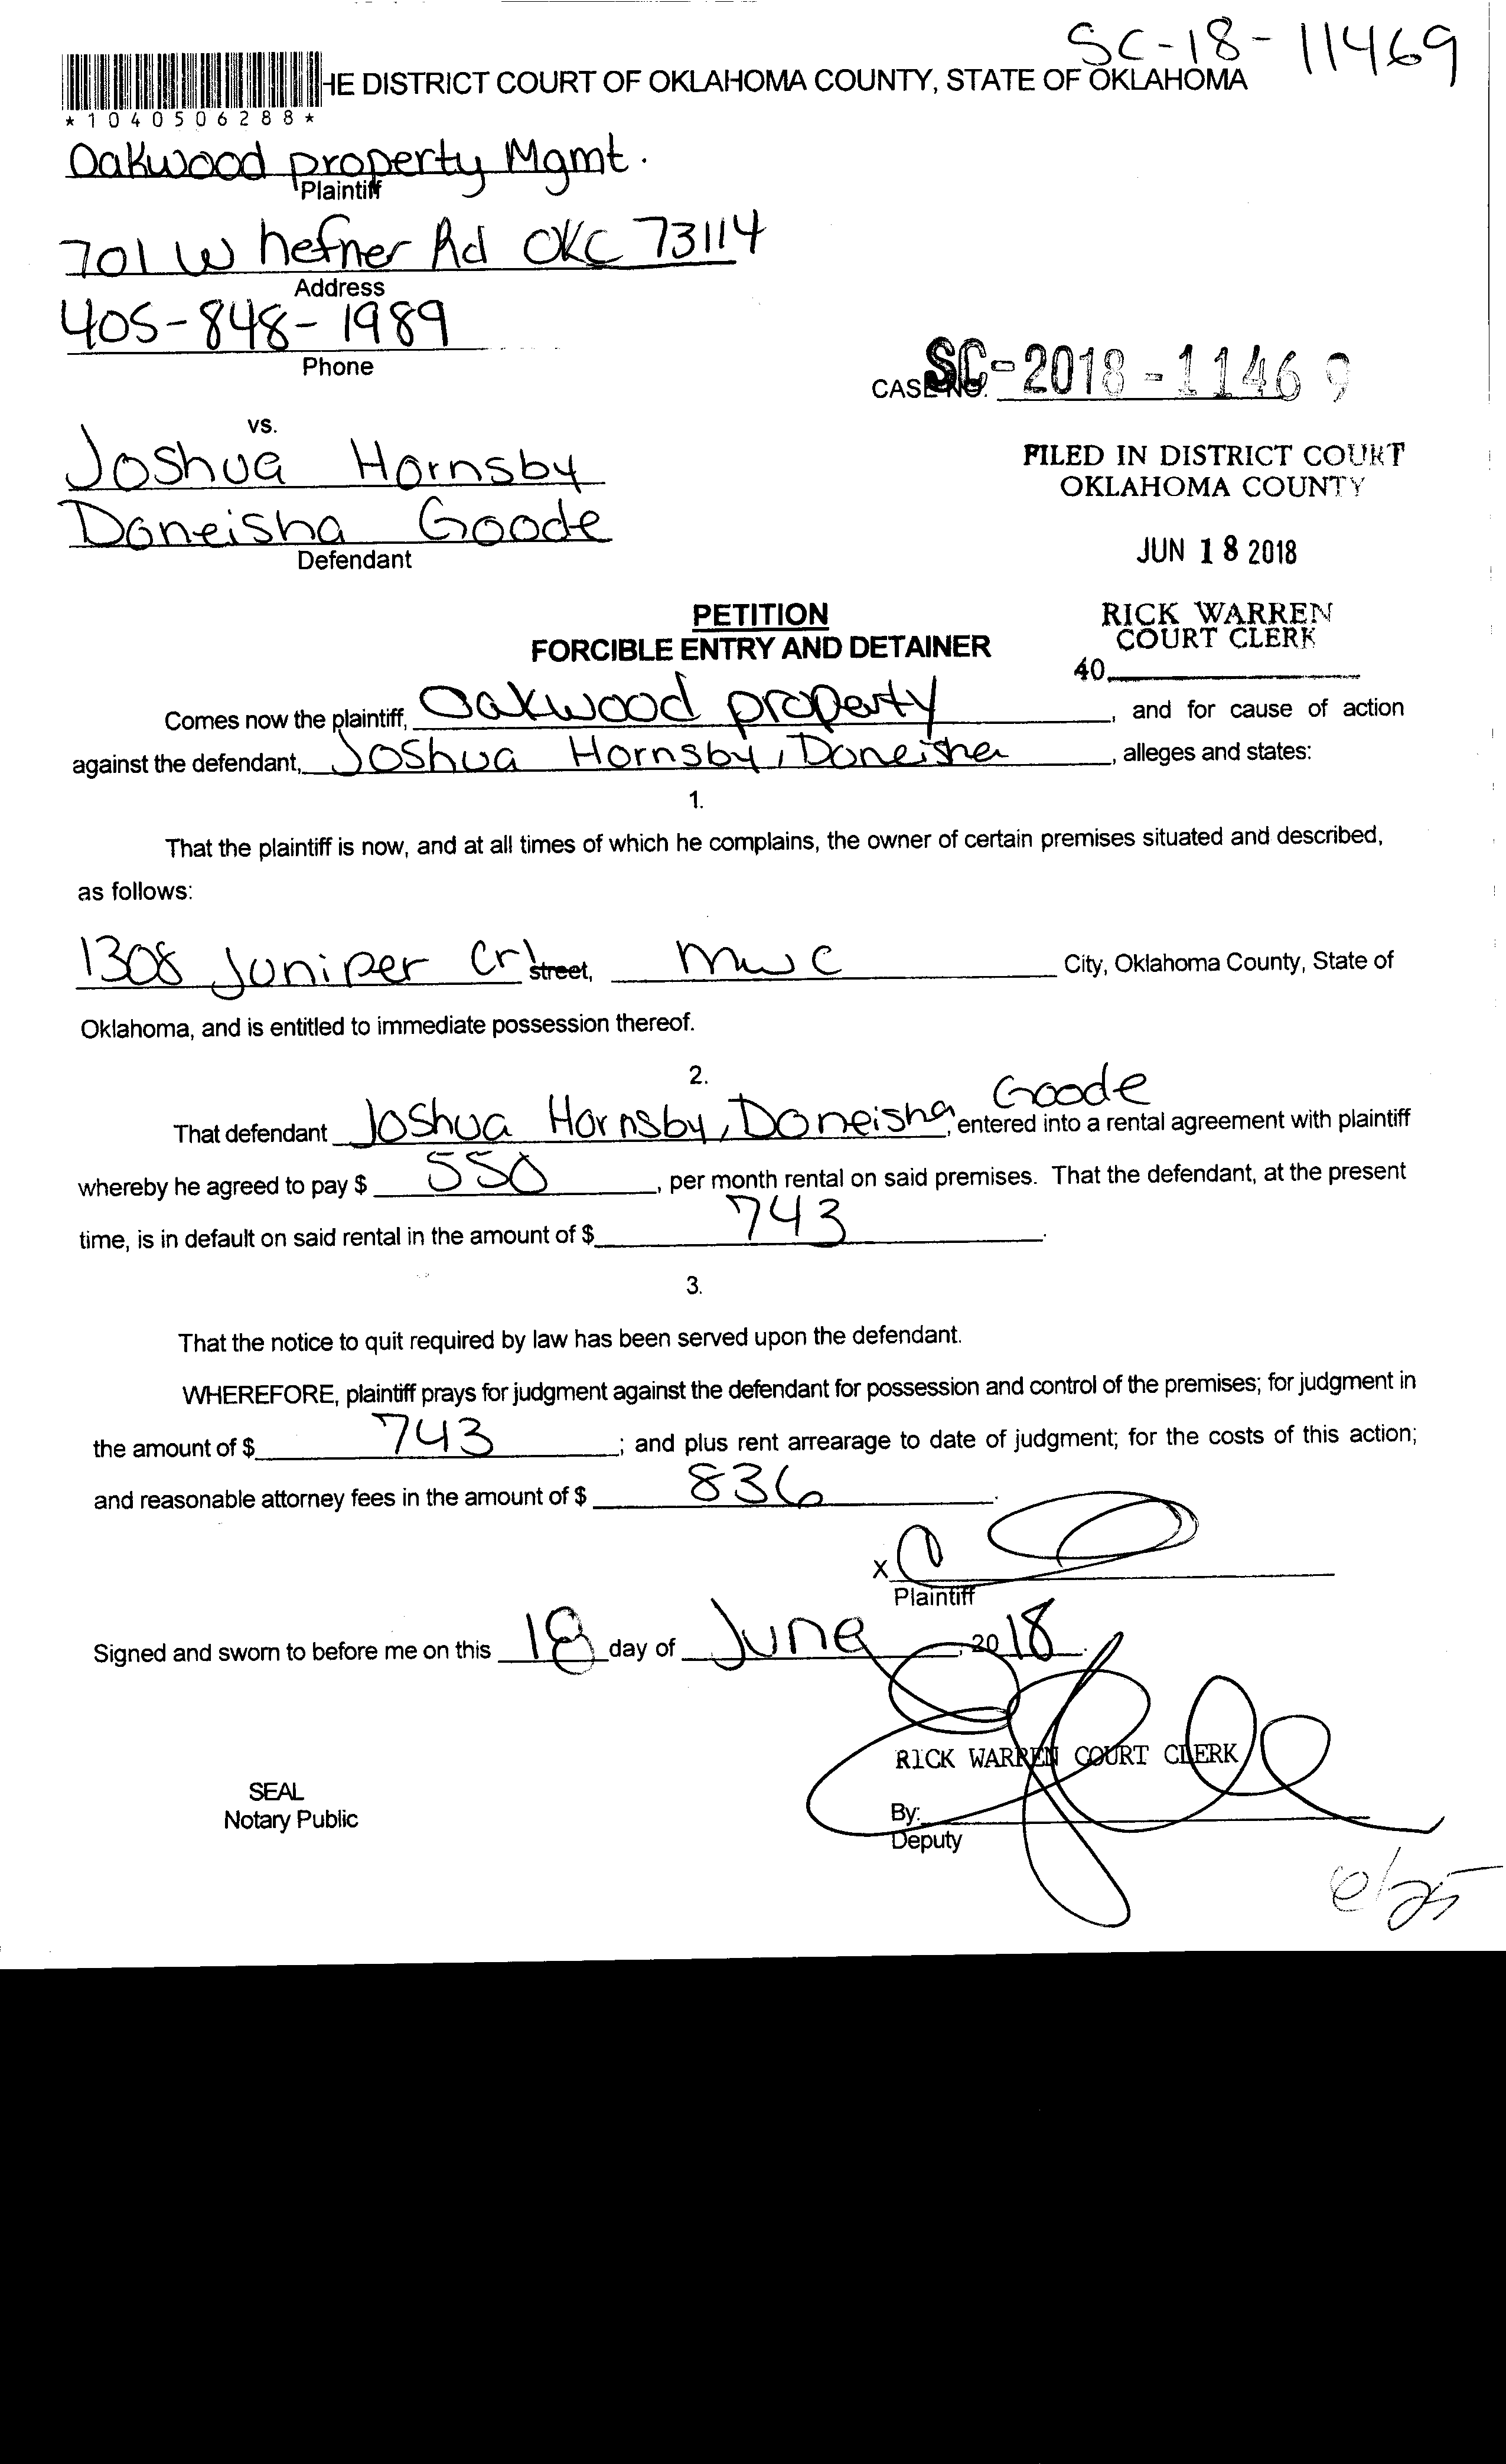 SC-18-11469
HE DISTRICT COURT OF OKLAHOMA COUNTY, STATE OF OKLAHOMA
*1040506288*
Oakwood property Mgmt.
Plaintiff
701 W hefner Rd OKC 73114
Address
405-848-1989
Phone
CASE NO. SC-2018-11469
vs.
Joshua Hornsby
Doneisha Goode
Defendant
FILED IN DISTRICT COURT
OKLAHOMA COUNTY
JUN 18 2018
RICK WARREN
COURT CLERK
40
PETITION
FORCIBLE ENTRY AND DETAINER
Comes now the plaintiff, Oakwood property, and for cause of action
against the defendant, Joshua Hornsby, Doneisha, alleges and states:
1.
That the plaintiff is now, and at all times of which he complains, the owner of certain premises situated and described,
as follows:
1308 Juniper Cr street, mwc City, Oklahoma County, State of
Oklahoma, and is entitled to immediate possession thereof.
2.
That defendant Joshua Hornsby, Doneisha Goode, entered into a rental agreement with plaintiff
whereby he agreed to pay $ 550, per month rental on said premises. That the defendant, at the present
time, is in default on said rental in the amount of $ 743.
3.
That the notice to quit required by law has been served upon the defendant.
WHEREFORE, plaintiff prays for judgment against the defendant for possession and control of the premises; for judgment in
the amount of $ 743; and plus rent arrearage to date of judgment; for the costs of this action;
and reasonable attorney fees in the amount of $ 836.
x
Plaintiff
Signed and sworn to before me on this 18 day of June, 2018.
RICK WARREN COURT CLERK
SEAL
Notary Public
By:
Deputy